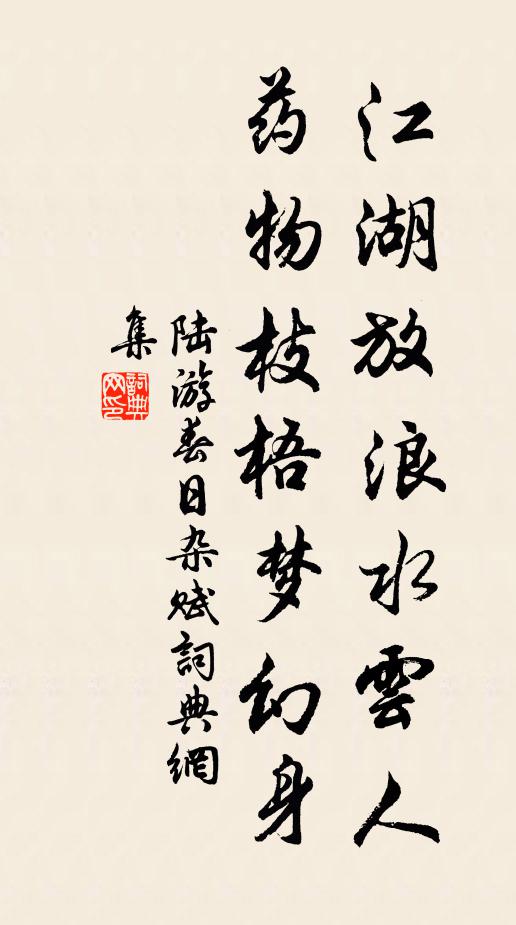 江湖放浪水雲人
药物枝梧梦幻身
陆游春日杂赋詞典網
集
詞典网印